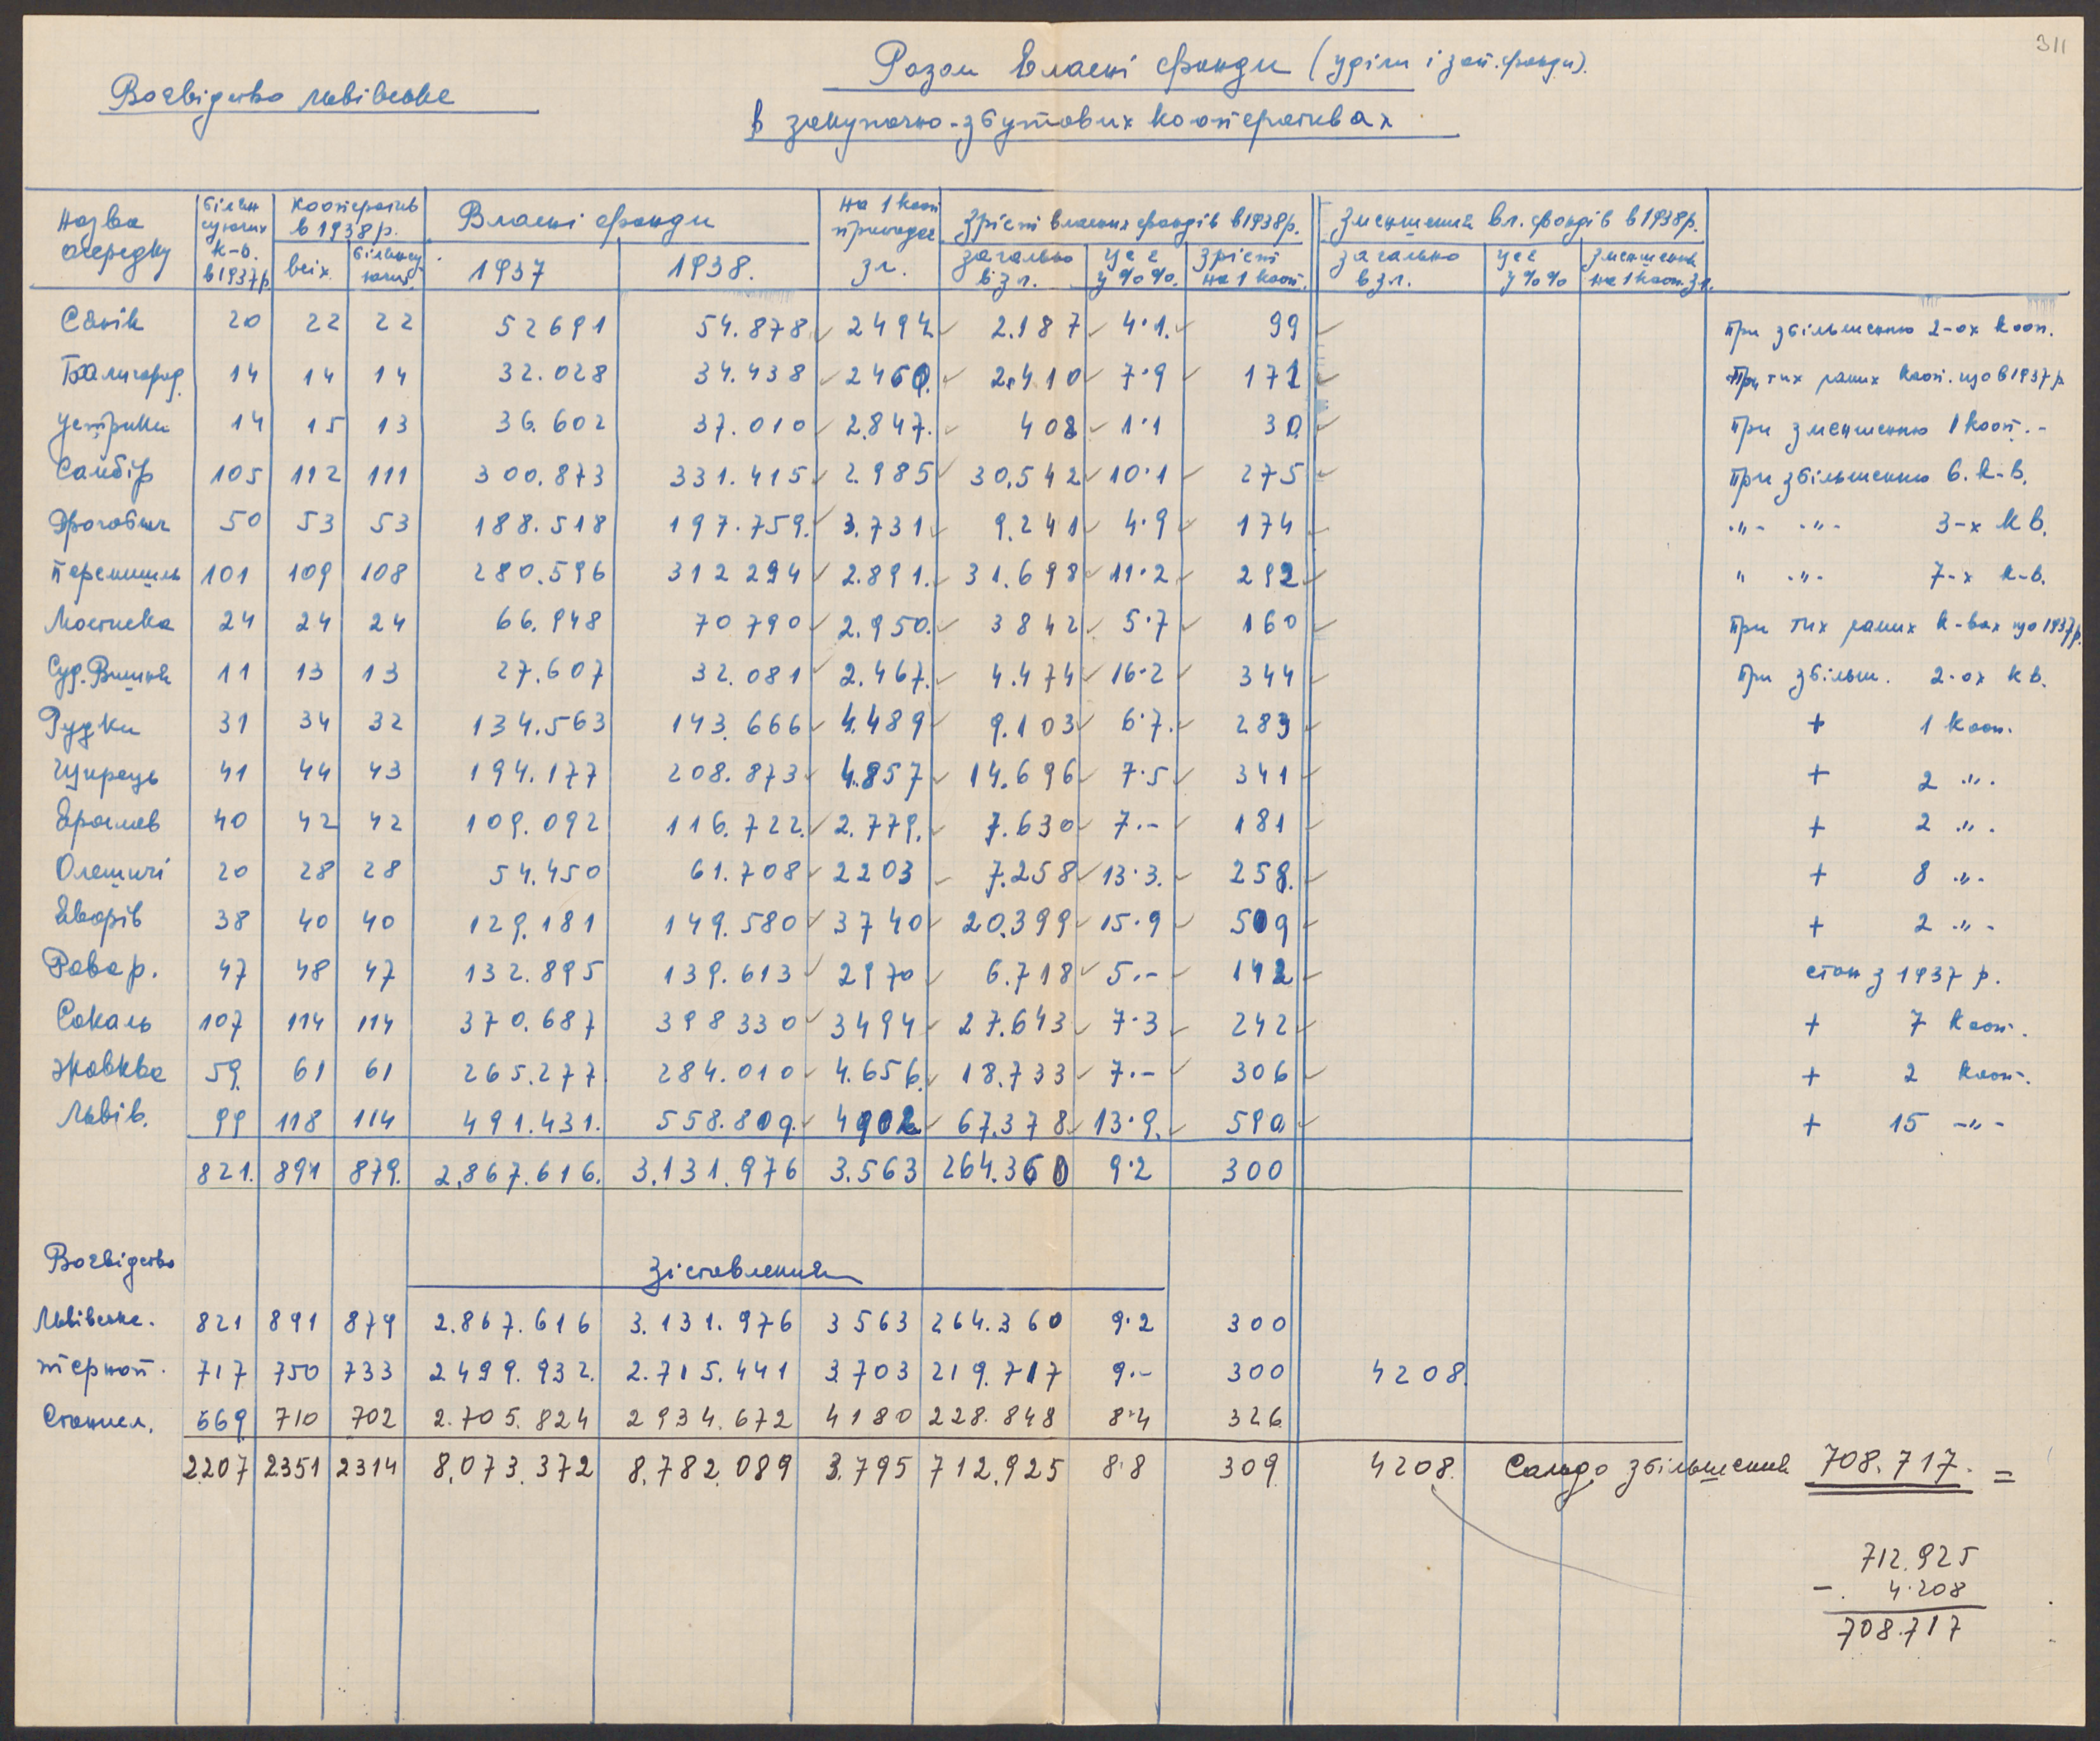 311
Разом Власні фонди (уділи і зап. фонди).
Воєвідство львівське
в закупочно-збутових кооперативах
Назва осередку | білансуючих к-в. в 1937 р. | кооператив в 1938 р. | Власні фонди | на 1 кооп припадає зл. | Зріст власних фондів в 1938 р. | Зменшення вл. фондів в 1938 р.
всіх | білансуючих | 1937 | 1938. | загально в зл. | це є у %%. | Зріст на 1 кооп. | загально в зл. | це є у %% | зменшення на 1 кооп. зл.
Сянік 20 22 22 52691 54.878 2494 2.187 4·1. 99 При збільшенню 2-ох кооп.
Балигород. 14 14 14 32.028 34.438 2460. 2.410 7·9 172 При тих самих кооп. що в 1937 р
Устрики 14 15 13 36.602 37.010 2.847. 408 1·1 30 При зменшенню 1 кооп.-
Самбір 105 112 111 300.873 331.415 2.985 30.542 10·1 275 При збільшенню 6. к-в.
Дрогобич 50 53 53 188.518 197.759. 3.731 9.241 4·9 174 -"- -"- 3-х кв.
Перемишль 101 109 108 280.596 312 294 2.891. 31.698 11·2 292 " -"- 7-х к-в.
Мостиска 24 24 24 66.948 70790 2.950. 3842 5·7 160 При тих самих к-вах що 1937 р.
Суд. Вишня 11 13 13 27.607 32.081 2.467. 4.474 16·2 344 При збільш. 2-ох кв.
Рудки 31 34 32 134.563 143.666 4.489 9.103 6·7. 283 + 1 кооп.
Щирець 41 44 43 194.177 208.873 4.857 14.696 7·5 341 + 2 -"-
Ярослав 40 42 42 109.092 116.722. 2.779. 7.630 7·- 181 + 2 -"-
Олешичі 20 28 28 54.450 61.708 2203 7.258 13·3. 258. + 8 -"-
Яворів 38 40 40 129.181 149.580 3740 20.399 15·9 509 + 2 -"-
Рава р. 47 48 47 132.895 139.613 2970 6.718 5·- 142 стан з 1937 р.
Сокаль 107 114 114 370.687 398330 3494 27.643 7·3 242 + 7 кооп.
Жовква 59. 61 61 265.277 284.010 4.656. 18.733 7·- 306 + 2 кооп.
Львів. 99 118 114 491.431. 558.809. 4902 67.378 13·9. 590 + 15 -"-
821. 891 879. 2.867.616. 3.131.976 3.563 264.360 9·2 300
Воєвідство
Зіставлення
Львівське. 821 891 879 2.867.616 3.131.976 3563 264.360 9·2 300
терноп. 717 750 733 2499.932. 2.715.441 3703 219.717 9·- 300 4208.
Станисл. 669 710 702 2.705.824 2934.672 4180 228.848 8·4 326
2207 2351 2314 8.073.372 8.782.089 3.795 712.925 8·8 309 4208. Сальдо збільшення 708.717. =
712.925
- 4·208
708.717